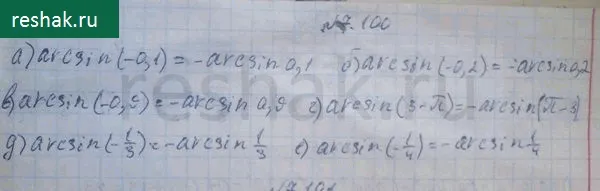 reshak.ru
№7.100
а) arcsin(-0,1) = -arcsin 0,1 б) arcsin(-0,2) = -arcsin 0,2
в) arcsin(-0,9) = -arcsin 0,9 г) arcsin(3-π) = -arcsin(π-3)
д) arcsin(-1/3) = -arcsin 1/3 е) arcsin(-1/4) = -arcsin 1/4